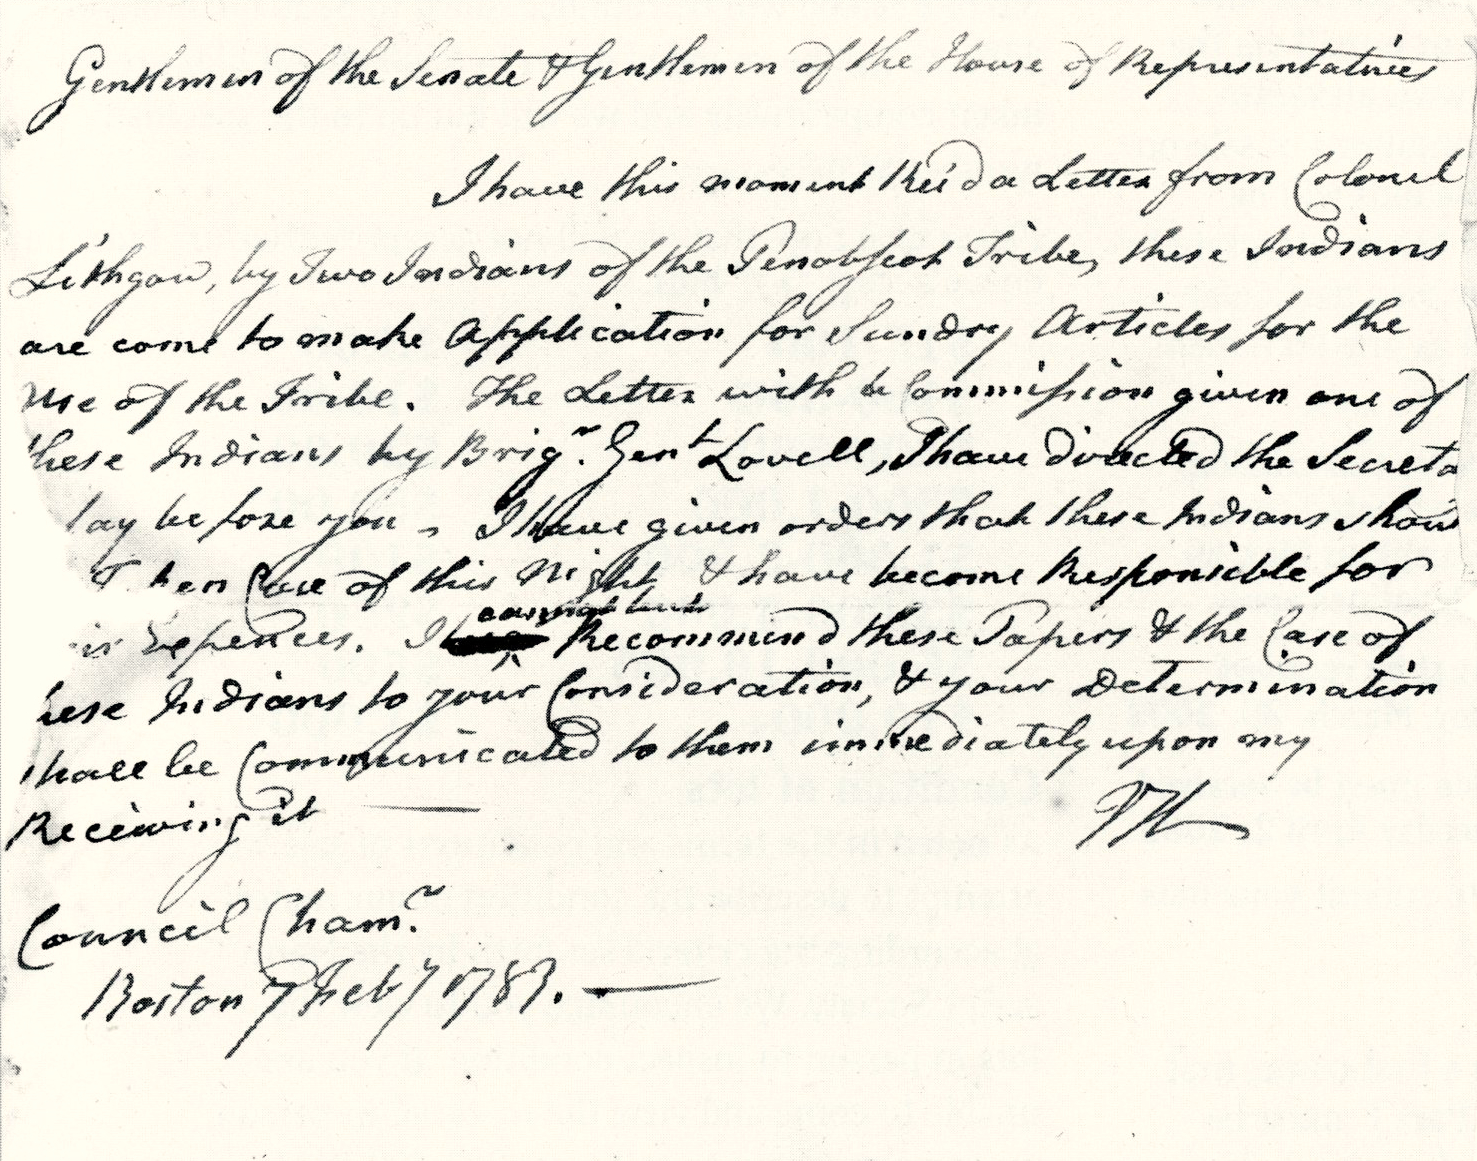 Gentlemen of the Senate & Gentlemen of the House of Representatives
I have this moment Rec'd a Letter from Colonel
Lithgow, by Two Indians of the Penobscot Tribe, these Indians
are come to make Application for Sundry Articles for the
Use of the Tribe. The Letter with ye Commission given one of
these Indians by Brigr. Genl Lovell, I have directed the Secreta
lay before you - I have given orders that these Indians shou
Taken Care of this Night & have become Responsible for
eir Expences. I cannot but Recommend these Papers & the Case of
hese Indians to your Consideration, & your Determination
shall be Communicated to them immediately upon my
Receiving it —
JH
Council Chamr.
Boston 7 Feby 1783. —